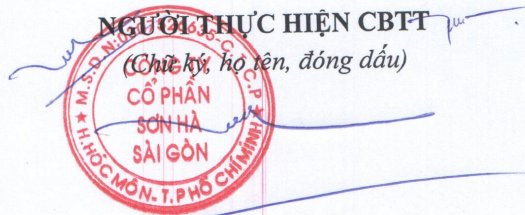 NGƯỜI THỰC HIỆN CBTT
(Chữ ký, họ tên, đóng dấu)
CÔNG TY
CỔ PHẦN
SƠN HÀ
SÀI GÒN
H.HÓC MÔN-T.PHỐ CHÍ MINH